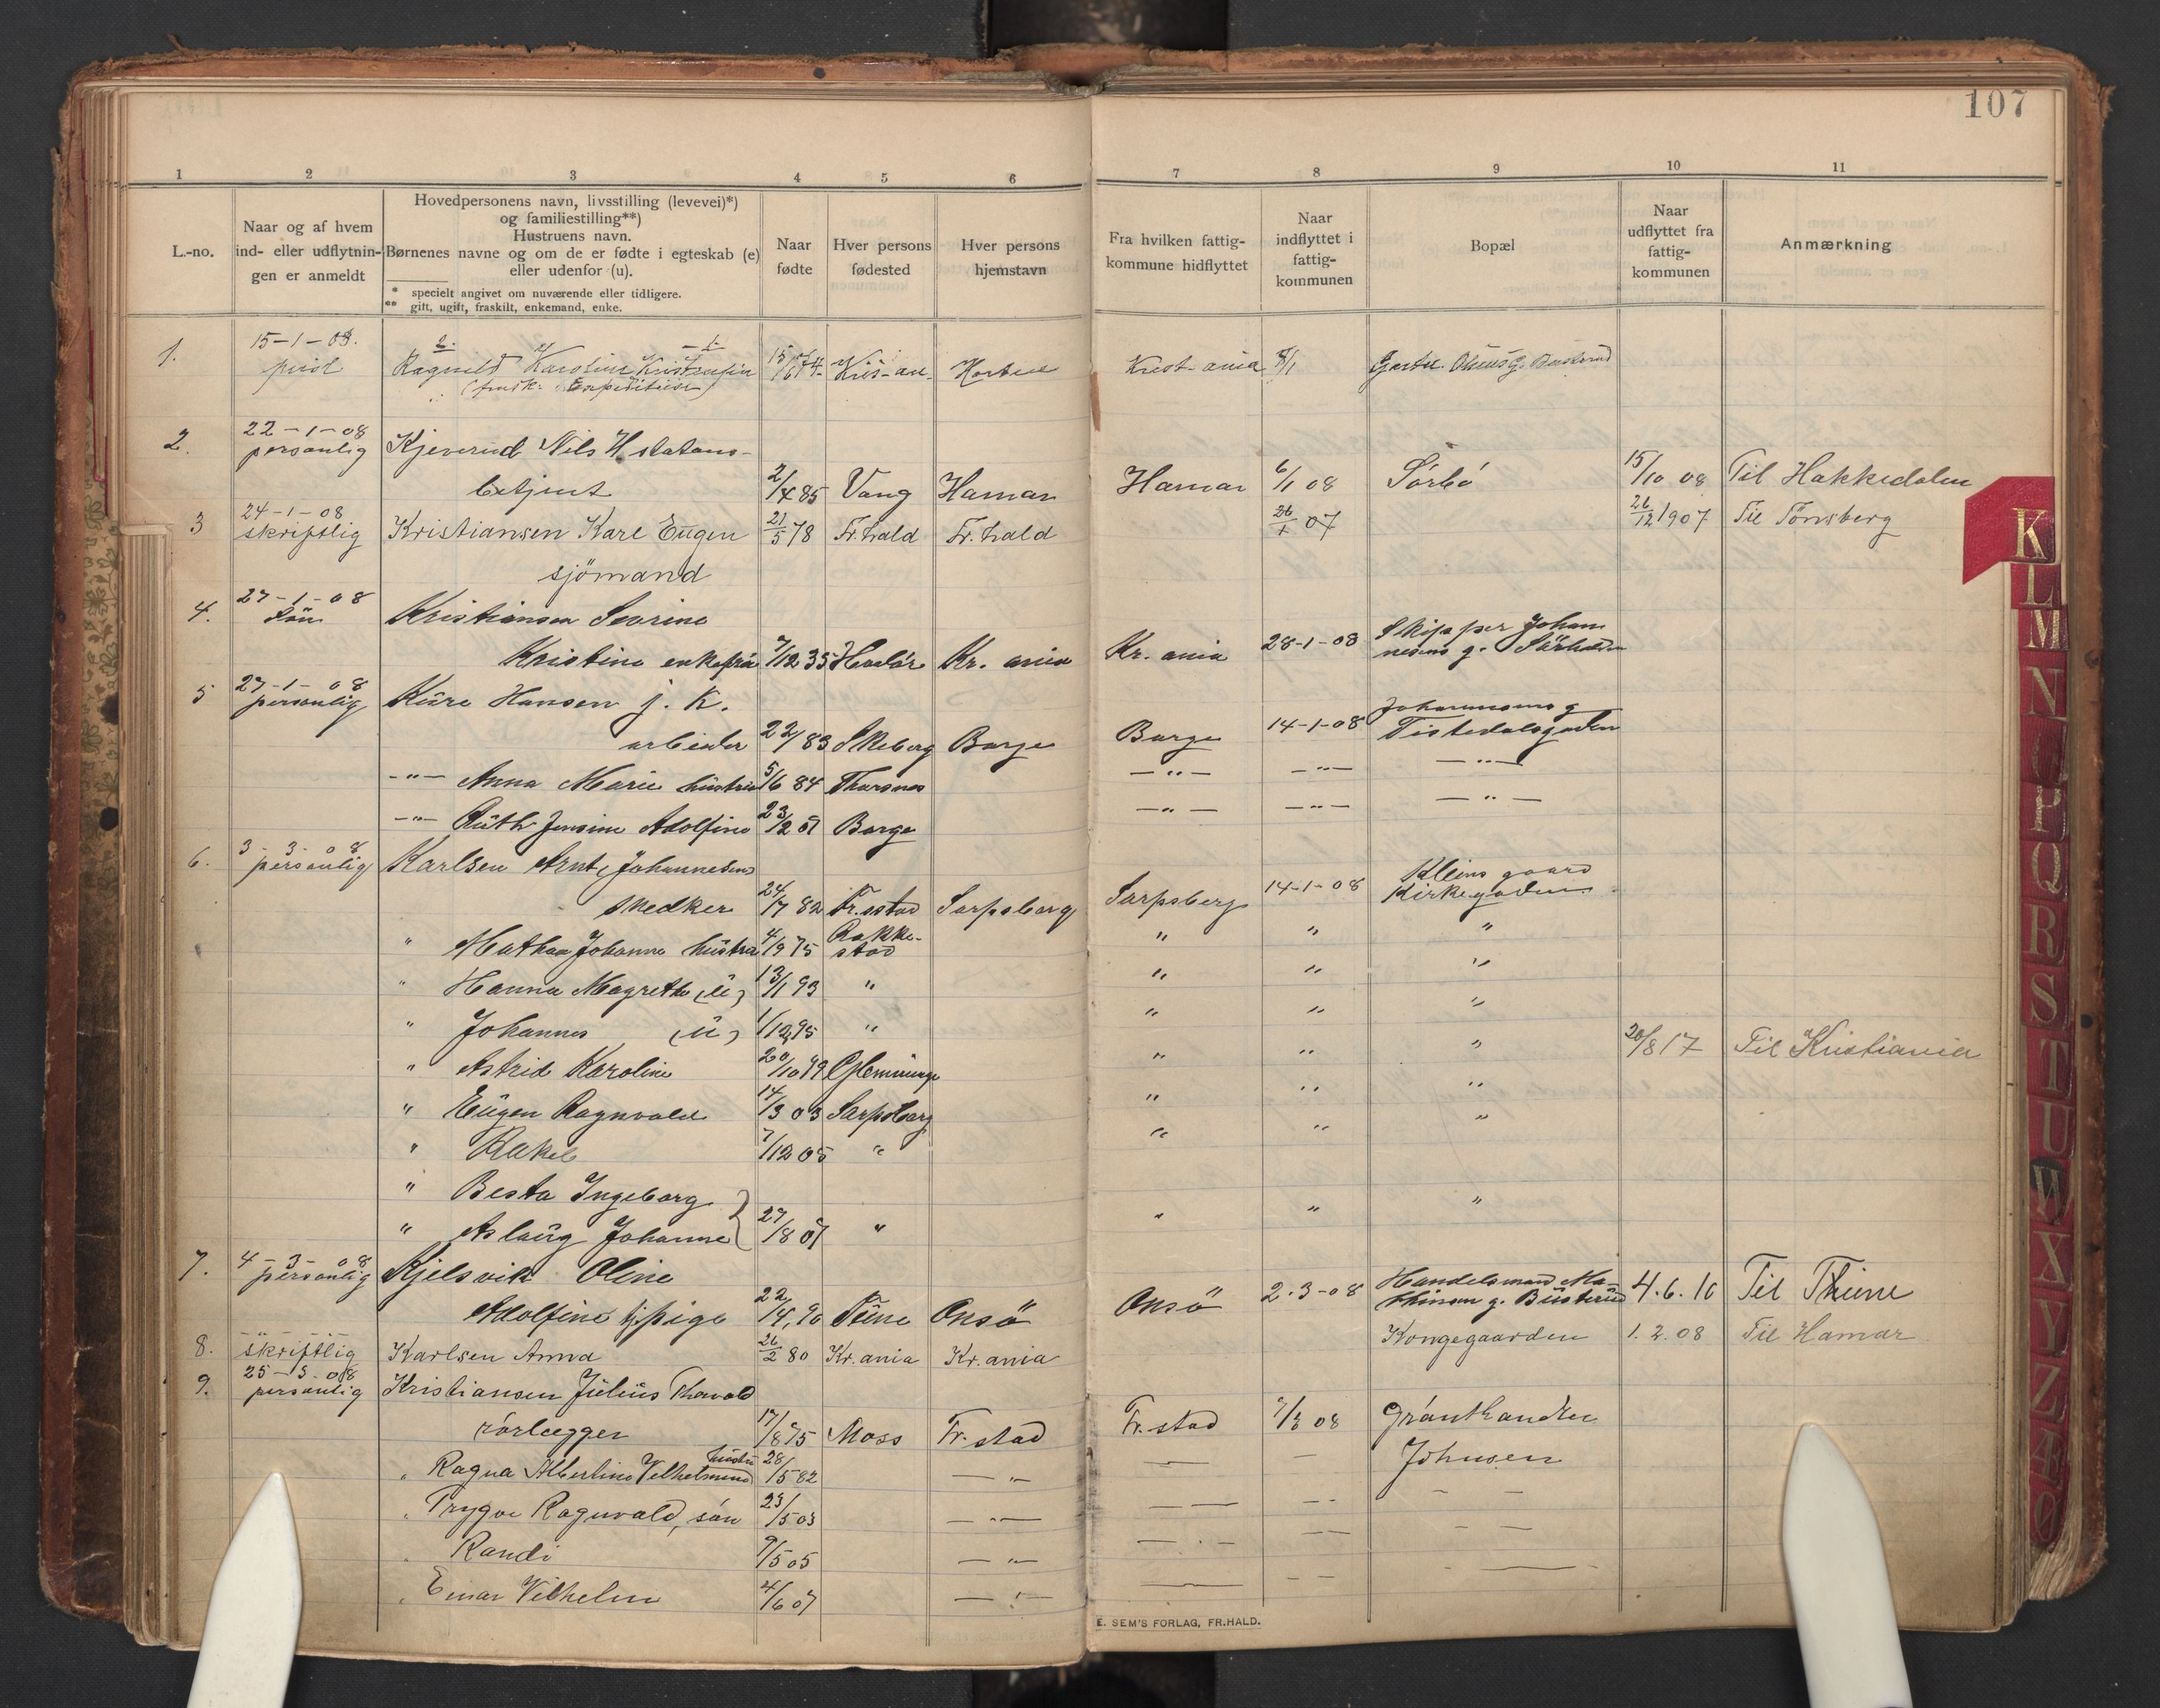 107
1 2 3 4 5 6 7 8 9 10 11
L.-no.
Naar og af hvem
ind- eller udflytnin-
gen er anmeldt
Hovedpersonens navn, livsstilling (levevei)*)
og familiestilling**)
Hustruens navn.
Børnenes navne og om de er fødte i egteskab (e)
eller udenfor (u).
* specielt angivet om nuværende eller tidligere.
** gift, ugift, fraskilt, enkemand, enke.
Naar
fødte
Hver persons
fødested
Hver persons
hjemstavn
Fra hvilken fattig-
kommune hidflyttet
Naar
indflyttet i
fattig-
kommunen
Bopæl
Naar
udflyttet fra
fattig-
kommunen
Anmærkning
15-1-08.
1. Ragnild Karoline
2. 22-1-08
personlig Kjeverud Nils H statans-
betjent 2/4 85 Vang Hamar Hamar 6/1 08 Sörbö 15/10 08 Til Hakkedalen
3 24-1-08
skriftlig Kristiansen Karl Eugen 21/5 78 Fr.hald Fr.hald 26/1 07 26/12 1907 Til Tönsberg
sjömand
4. 27-1-08
Sön Kristiansen Severine
Kristine enkefrü 7/12 35 Hvalör Kr. ania Kr. ania 28-1-08 Skipper Johan
nesens g.
5 27-1-08
personlig Küre Hansen J. K.
arbeider 22/ 83 Skeberg Borge Borge 14-1-08 Johannesens g
Tistedalsgaden
-"- Anna Marie hüstrü 5/6 84 Thorsnes -"- -"- -"-
-"- Rüth Jensine Adolfine 23/2 07 Borge -"- -"- -"-
6. 3-3-08
personlig Karlsen Arnt Johannesen
Snedker 24/7 82 Fr.stad Sarpsborg Sarpsborg 14-1-08 Kleins gaard
Kirkegaden
" Mathea Johanne hüstrü 4/9 75 Rakke-
stad " " "
" Hanna Magrethe (ü) 13/1 93 " " " "
" Johannes (ü) 1/12 95 " " " "
" Astrid Karoline 20/10 99 Glemminge " " " 20/8 17 Til Kristiania
" Eügen Ragnvald 14/3 03 Sarpsborg " " "
" Rakel 7/12 05 " " " "
" Besta Ingeborg
" Aslaüg Johanne 27/8 07 " " " "
7. 4-3-08
personlig Kjelsvik Oline
Adolfine tj.pige 22/4, 90 Tüne Onsö Onsö 2-3-08 Handelsmand Ma-
thisen g. Büsterüd 4.6.10 Til Thune
8. skriftlig Karlsen Anna 26/2 80 Kr.ania Kr.ania Kongegaarden 1.2.08 Til Hamar
9. 25-3-08
personlig Kristiansen Jülius Thorvald
rörlægger 17/8 75 Moss Fr.stad Fr.stad 7/3 08 Grönthandler
" Ragna Albertine Vilhelmine hüstrü 28/5 82 -"- Johnsen
" Trygve Ragnvald, sön 23/5 03 -"-
" Randi 9/5 05 -"-
" Einar Vilhelm 4/6 07 -"-
E. SEM'S FORLAG, FR.HALD.
K
L
M
N
O
P
Q
R
S
T
U
W
X
Y
Z
Æ
Ø